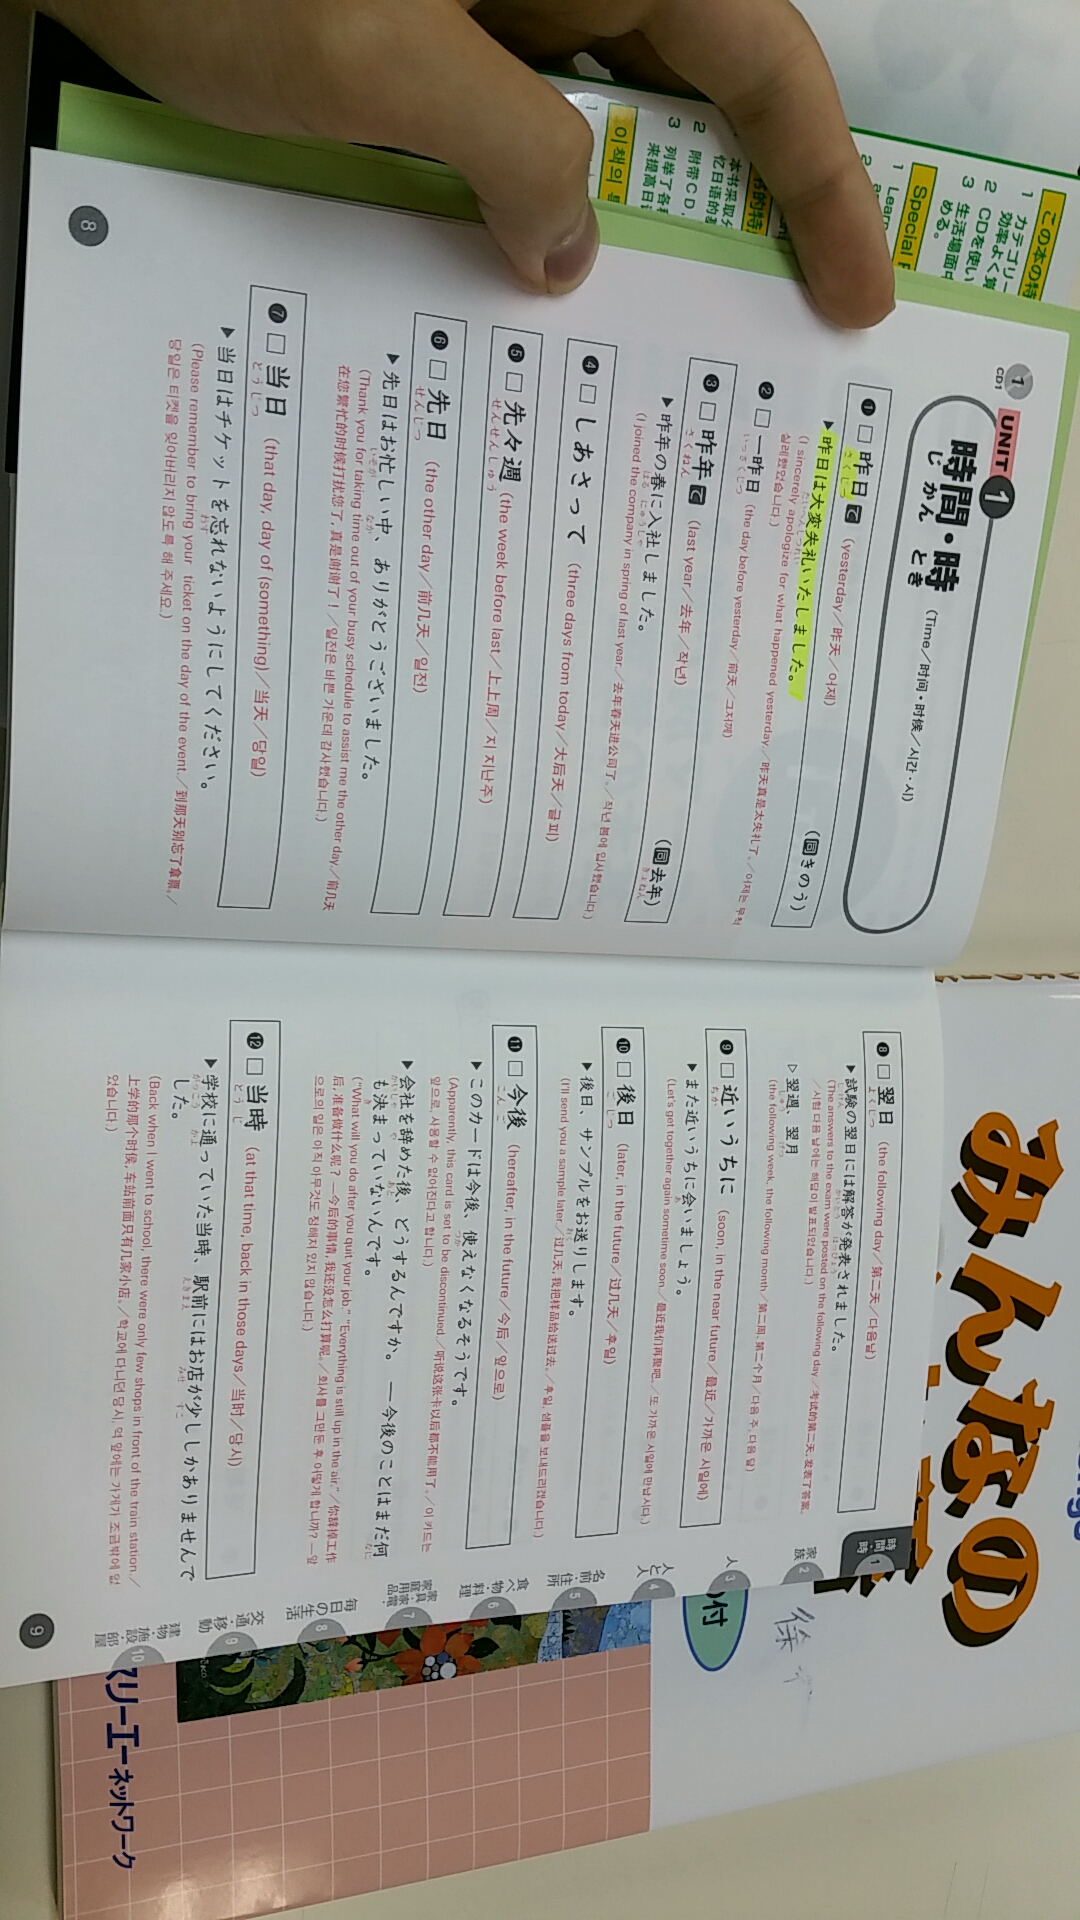 1
CD1
UNIT 1
時間・時
じかん とき
(Time/时间・时候/시간・시)
❶ □ 昨日 (yesterday/昨天/어제) (同きのう)
さくじつ
▶昨日は大変失礼いたしました。
たいへんしつれい
(I sincerely apologize for what happened yesterday./昨天真是太失礼了。/어제는 무척
실례했었습니다.)
❷ □ 一昨日 (the day before yesterday/前天/그저께)
いっさくじつ
❸ □ 昨年 (last year/去年/작년) (同去年)
さくねん
きょねん
▶昨年の春に入社しました。
はる にゅうしゃ
(I joined the company in spring of last year./去年春天进公司了。/작년 봄에 입사했습니다.)
❹ □ しあさって (three days from today/大后天/글피)
❺ □ 先々週 (the week before last/上上周/지지난주)
せんせんしゅう
❻ □ 先日 (the other day/前几天/일전)
せんじつ
▶先日はお忙しい中、ありがとうございました。
いそが なか
(Thank you for taking time out of your busy schedule to assist me the other day./前几天
在您繁忙的时候打扰您了,真是谢谢了!/일전은 바쁜 가운데 감사했습니다.)
❼ □ 当日 (that day, day of (something)/当天/당일)
とうじつ
▶当日はチケットを忘れないようにしてください。
わす
(Please remember to bring your ticket on the day of the event./到那天别忘了拿票。/
당일은 티켓을 잊어버리지 않도록 해 주세요.)
8
❽ □ 翌日 (the following day/第二天/다음날)
よくじつ
▶試験の翌日には解答が発表されました。
しけん かいとう はっぴょう
(The answers to the exam were posted on the following day./考试的第二天,发表了答案。
/시험 다음 날에는 해답이 발표되었습니다.)
▷翌週、翌月
しゅう げつ
(the following week, the following month/第二周,第二个月/다음 주, 다음 달)
❾ □ 近いうちに (soon, in the near future/最近/가까운 시일에)
ちか
▶また近いうちに会いましょう。
あ
(Let's get together again sometime soon./最近我们再聚吧。/또 가까운 시일에 만납시다.)
❿ □ 後日 (later, in the future/过几天/후일)
ごじつ
▶後日、サンプルをお送りします。
おく
(I'll send you a sample later./过几天,我把样品给送过去。/후일, 샘플을 보내드리겠습니다.)
⓫ □ 今後 (hereafter, in the future/今后/앞으로)
こんご
▶このカードは今後、使えなくなるそうです。
つか
(Apparently, this card is set to be discontinued./听说这张卡以后都不能用了。/이 카드는
앞으로, 사용할 수 없어진다고 합니다.)
▶会社を辞めた後、どうするんですか。―今後のことはまだ何
かいしゃ や あと なに
も決まっていないんです。
き
("What will you do after you quit your job." "Everything is still up in the air."/你辞掉工作
后,准备做什么呢?—今后的事情,我还没怎么打算呢。/회사를 그만둔 후 어떻게 합니까? ―앞
으로의 일은 아직 아무것도 정해져 있지 않습니다.)
⓬ □ 当時 (at that time, back in those days/当时/당시)
とうじ
▶学校に通っていた当時、駅前にはお店が少ししかありませんで
がっこう かよ えきまえ みせ すこ
した。
(Back when I went to school, there were only few shops in front of the train station./
上学的那个时侯,车站前面只有几家小店。/학교에 다니던 당시, 역 앞에는 가게가 조금밖에 없
었습니다.)
9
1 時間・時
2 家族
3 人
4 人と人
5 名前・住所
6 食べ物・料理
7 家具・家電・家庭用品
8 毎日の生活
9 交通・移動
10 建物・施設・部屋
この本の特
1 カテゴリー
効率よく覚
2 CDを使い
3 生活場面で
める。
Special F
1 Learn
2
书的特
本书采取分
忆日语的
2 附带CD,
3 列举了各种
来提高日语
이 책의 특
1
みんなの
付
スリーエーネットワーク